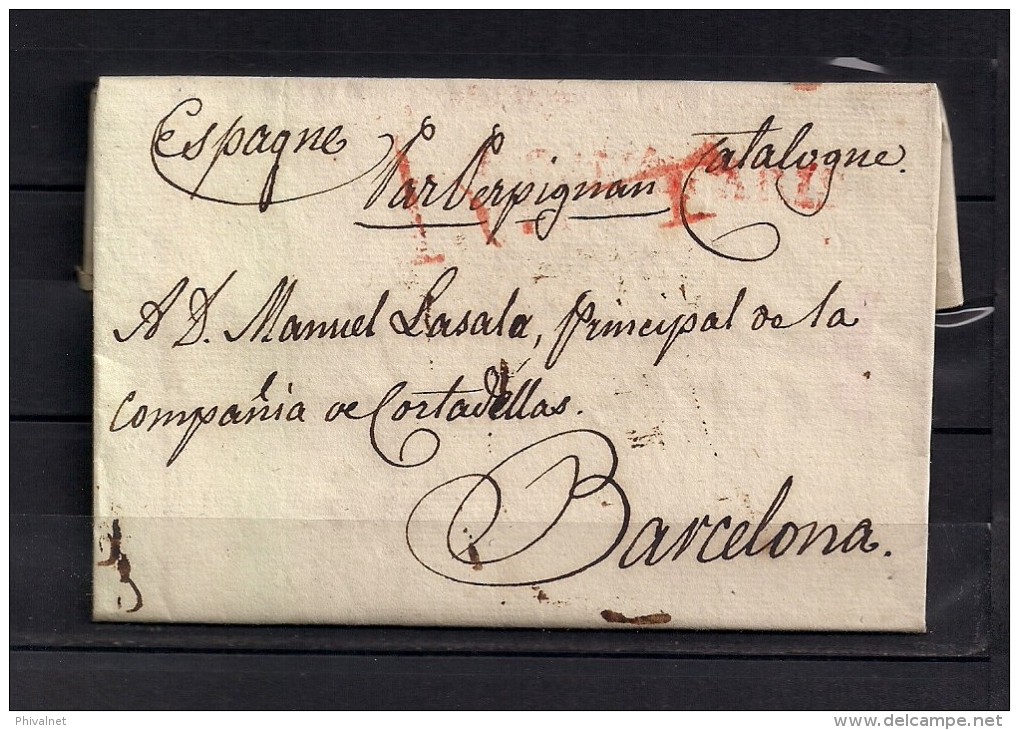 Espagne Catalogne.
Par Perpignan
A D. Manuel Lasala, principal de la
Compañia de Cortadellas.
Barcelona.
Phivalnet
www.delcampe.net